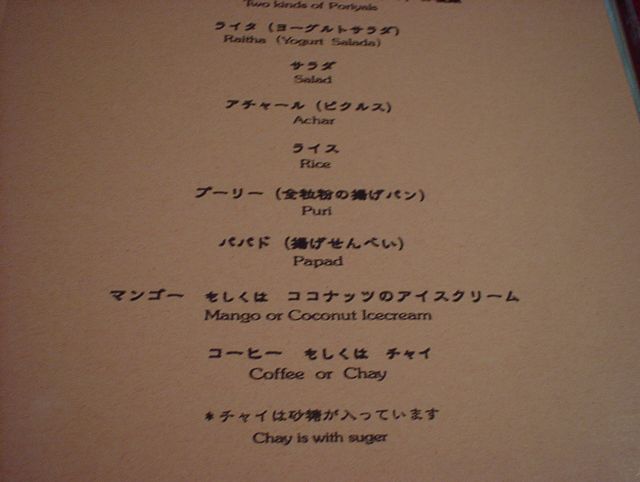 Two kinds of Poriyals
ライタ (ヨーグルトサラダ)
Raitha (Yogurt Salada)
サラダ
Salad
アチャール (ピクルス)
Achar
ライス
Rice
プーリー (全粒粉の揚げパン)
Puri
パパド (揚げせんべい)
Papad
マンゴー もしくは ココナッツのアイスクリーム
Mango or Coconut Icecream
コーヒー もしくは チャイ
Coffee or Chay
*チャイは砂糖が入っています
Chay is with suger